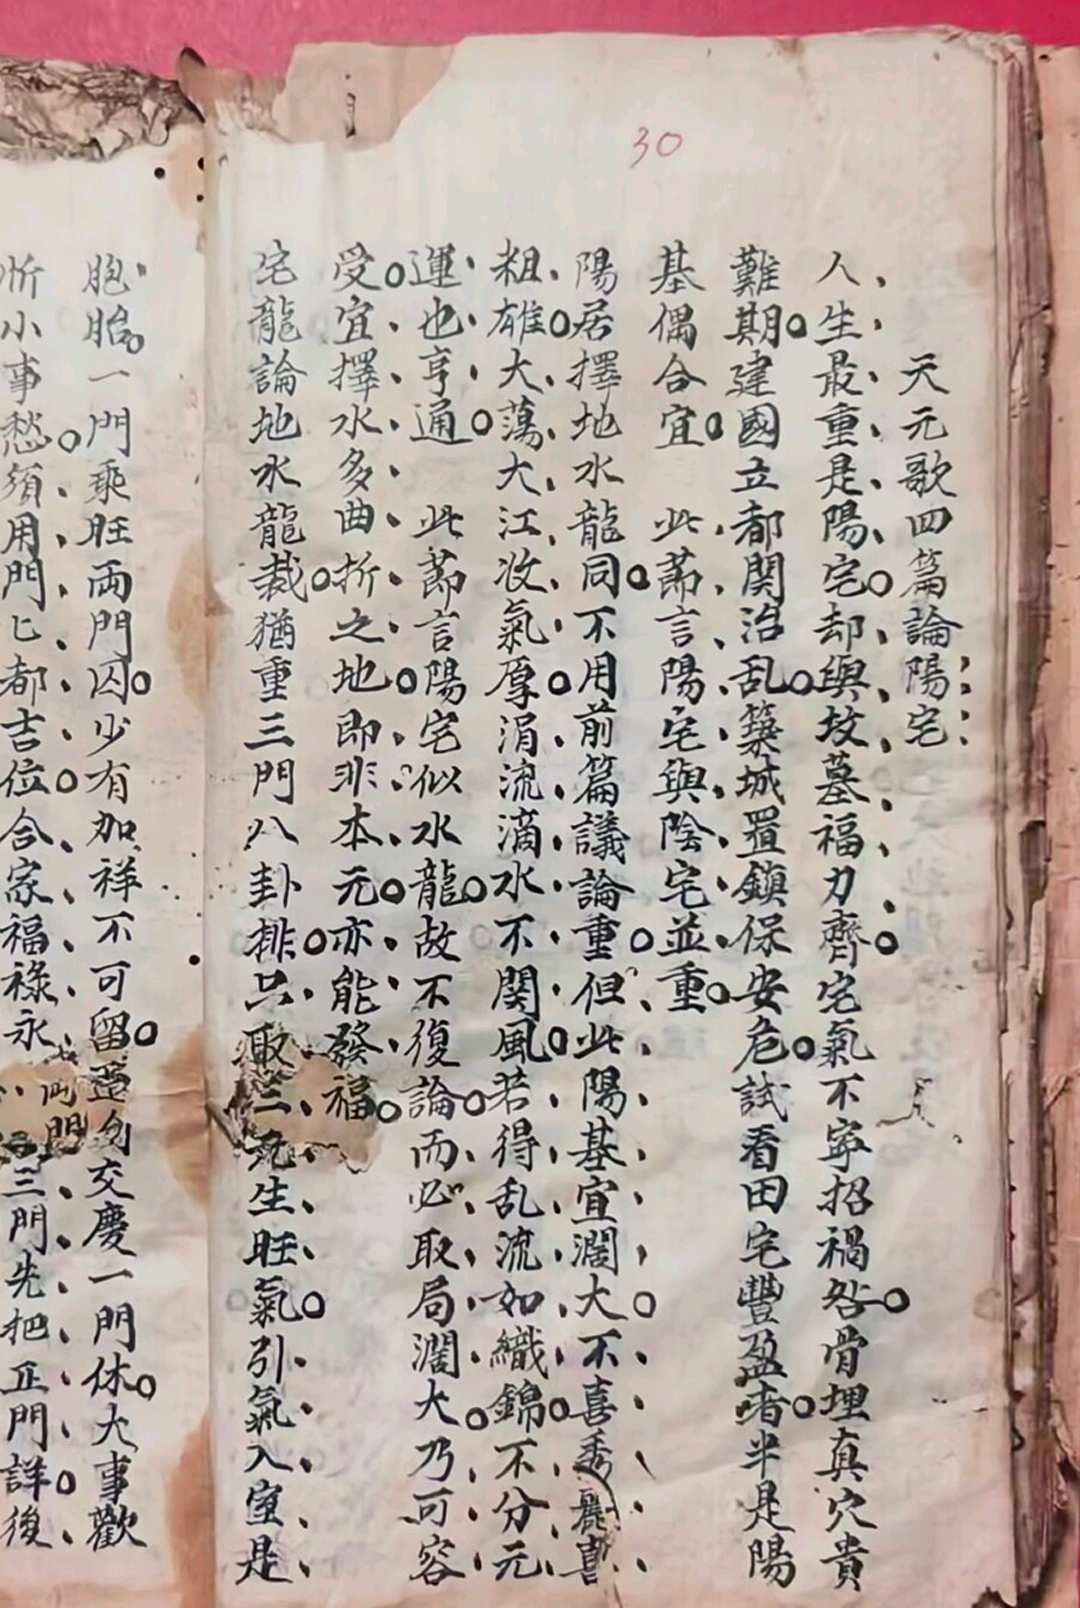 30
天元歌四篇論陽宅
人生最重是陽宅却與坟墓福力齊宅氣不寧招禍咎骨埋真穴貴
難期建國立都関治乱築城置鎮保安危試看田宅豐盈者半是陽
基偶合宜 此節言陽宅與陰宅並重
陽居擇地水龍同不用前篇議論重但此陽基宜濶大不喜秀麗喜
粗雄大蕩大江收氣厚涓流滴水不関風若得乱流如織錦不分元
運也亨通 此節言陽宅似水龍故不復論而必取局濶大乃可容
受宜擇水多曲折之地即非本元亦能發福
宅龍論地水龍裁猶重三門八卦排只取三元生旺氣引氣入室是
胞胎一門乘旺兩門囚少有加祥不可留交慶一門休大事歡
忻小事愁須用門匕都吉位合家福祿永
兩門
三門先把正門詳後